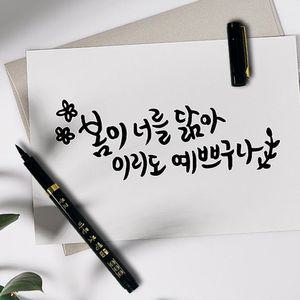 봄이 너를 닮아
이리도 예쁘구나